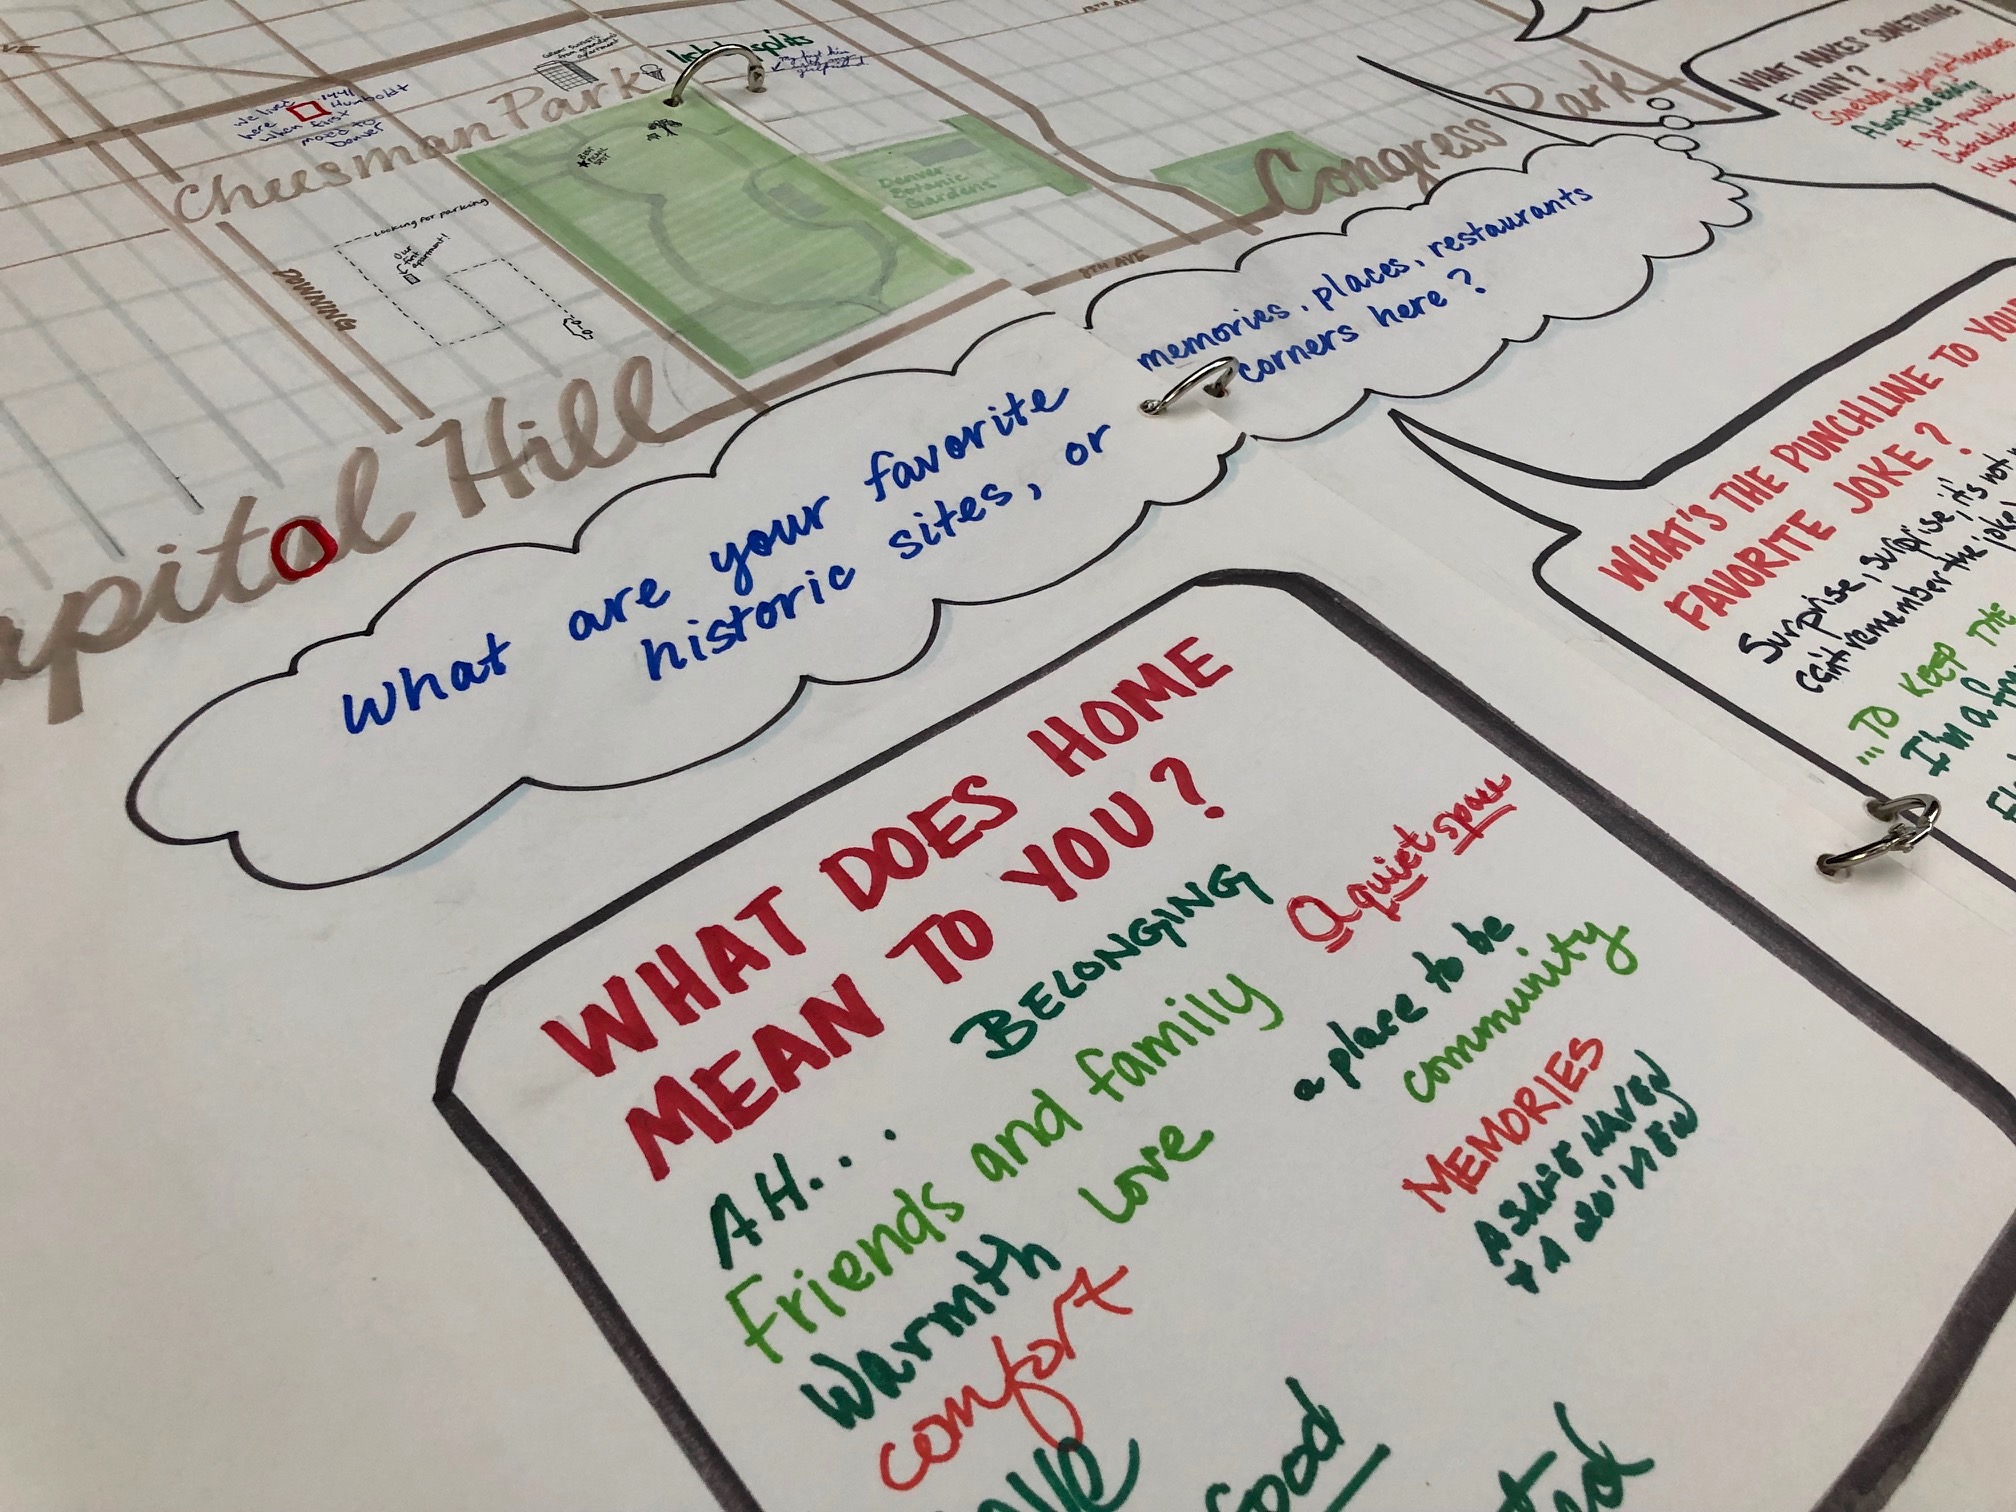 15TH AVE
Cheesman Park
we lived
here
1441
Humboldt
when first
moved to
Denver
Looking for parking
Our
first
apartment!
DOWNING
BEST
PICNIC
SPOT
Denver
Botanic
Gardens
Congress Park
8TH AVE
Capitol Hill
What are your favorite
historic sites, or
memories, places, restaurants
corners here?
WHAT DOES HOME
MEAN TO YOU?
BELONGING
A quiet space
AH...
Friends and family
a place to be
community
Warmth
Love
MEMORIES
A SAFE HAVEN
+ A 20' VIEW
comfort
Good
WHAT MAKES SOMETHING
FUNNY?
WHAT'S THE PUNCHLINE TO YOUR
FAVORITE JOKE?
Surprise, surprise, it's not
can't remember the joke
...TO KEEP THE
I'm a